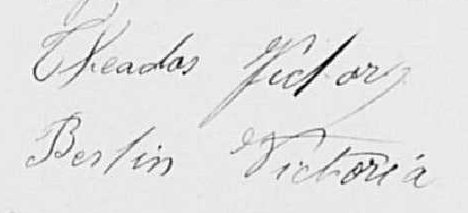 Theados Victory
Berlin Victoria